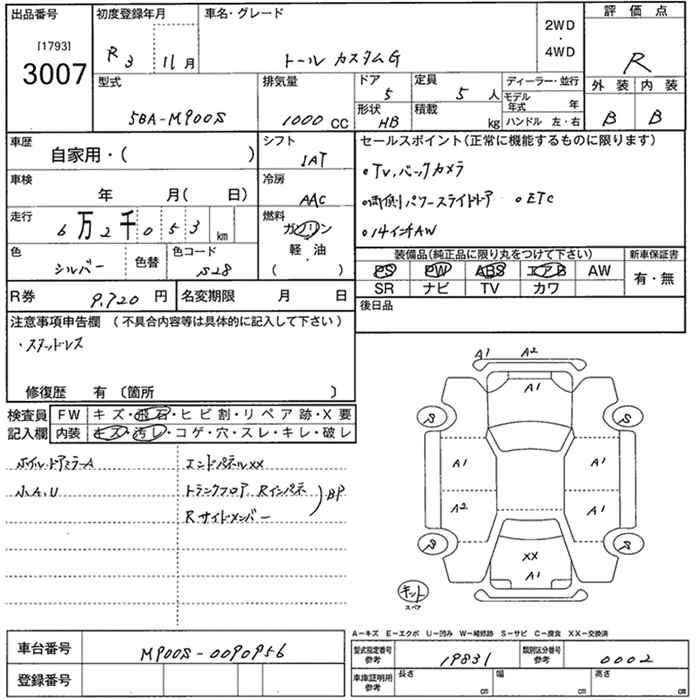 出品番号 初度登録年月 車名・グレード 2WD・4WD 評価点
[1793]
3007
R3 11月 トール カスタムG R
型式 排気量 ドア 5 定員 5人 ディーラー・並行 外装 内装
5BA-M900S 1000 CC 形状 HB 積載 kg モデル年式 年 B B
ハンドル 左・右
車歴 自家用・( ) シフト IAT セールスポイント(正常に機能するものに限ります)
車検 年 月( 日) 冷房 AAC
。TV,バックカメラ
。両側パワースライドドア 。ETC
。14インチAW
走行 6万2千053 km 燃料 ガソリン・軽・油 ( )
色 シルバー 色替 色コード S28
装備品(純正品に限り丸をつけて下さい) 新車保証書
PS PW ABS エアB AW 有・無
SR ナビ TV カワ
R券 9,720 円 名変期限 月 日 後日品
注意事項申告欄 (不具合内容等は具体的に記入して下さい)
・スタッドレス
修復歴 有 〔箇所 〕
検査員 FW キズ・飛石・ヒビ割・リペア跡・X要
記入欄 内装 キズ・汚レ・コゲ・穴・スレ・キレ・破レ
ホイル・ドアミラーA エンドパネルXX
小A,U トランクフロア,Rインパネ
Rサイドメンバー
BP
A1 A2
A1
S S
A1 A1
A2 A1
S S
XX
A1
キット
スペア
A-キズ E-エクボ U-凹み W-補修跡 S-サビ C-腐食 XX-交換済
車台番号 M900S-0090956
登録番号
型式指定番号 参考 19831 類別区分番号 参考 0002
車庫証明用 参考 長さ cm 幅 cm 高さ cm